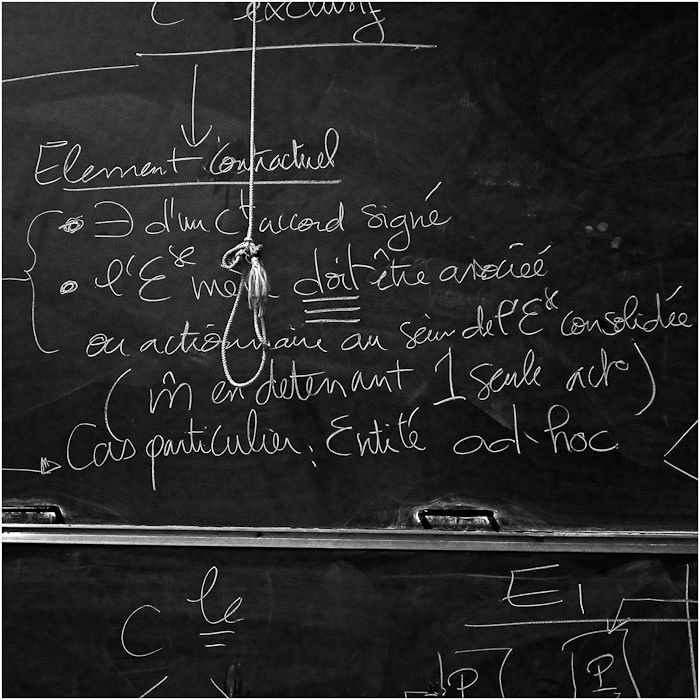 C exclusif
Element contractuel
∃ d'un Ct accord signé
l'Ese me doit être associée
ou actionnaire au sein de l'Ese consolidée
(m̂ en detenant 1 seule acto)
Cas particulier : Entité ad-hoc
C le
E1
P P